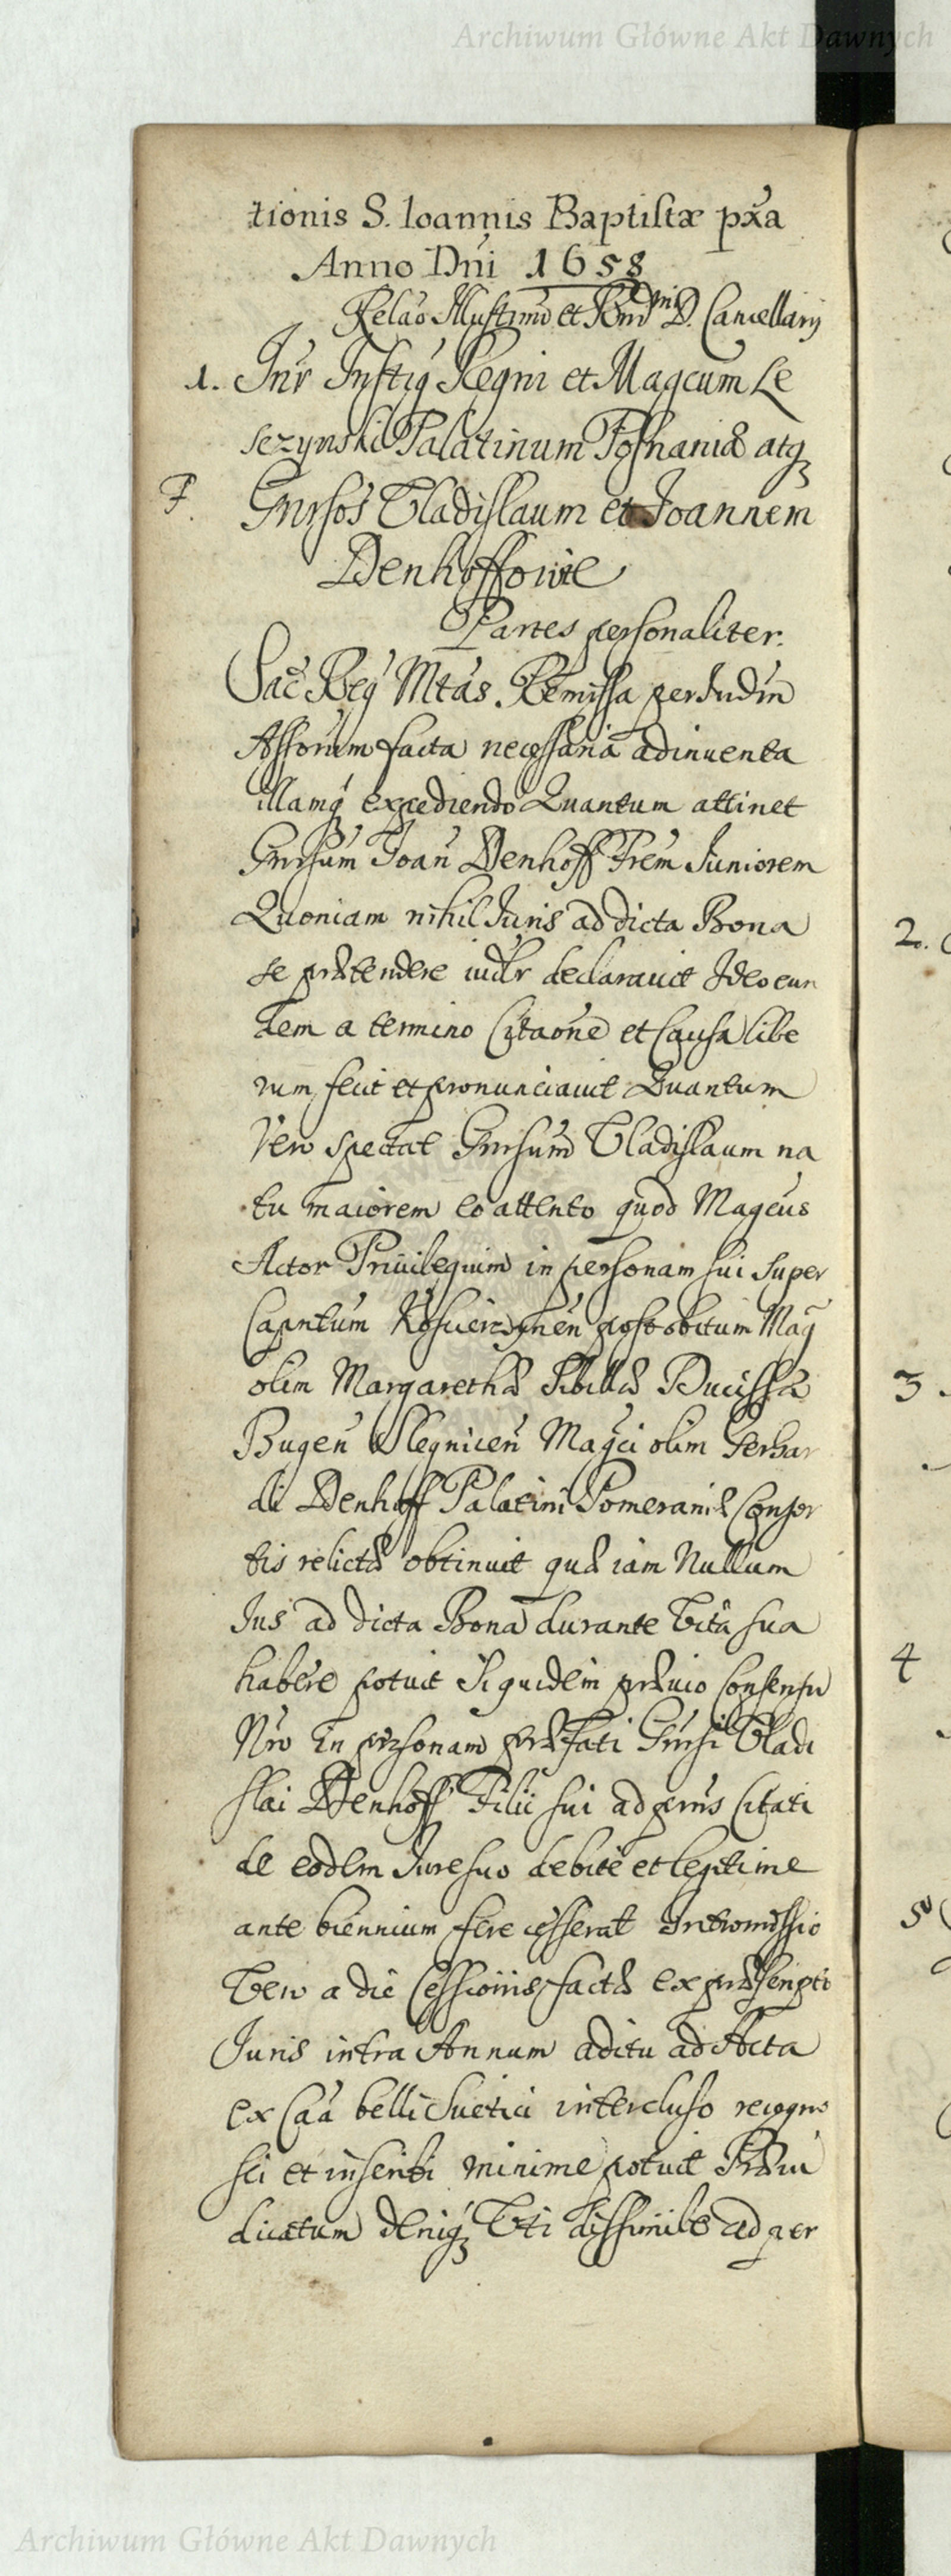 Archiwum Główne Akt Dawnych
tionis S. Ioannis Baptistæ pxa
Anno Dni 1658
Relao Illustrmi et Rndmi D. Cancellarij
1. Inr Instig Regni et Magcum Le
sezynski Palatinum Posnaniæ atq
F. Gnrsos Vladislaum et Joannem
Denhoffowie
Partes personaliter.
Sac Reg Mtas Remissa per Judm
Assorum facta necessaria adinuenta
illamq expediendo Quantum attinet
Gnrsum Joan Denhoff Frem Juniorem
Quoniam nihil Juris ad dicta Bona
se prætendere iudlr declarauit Ideo eun
dem a termino Citaone et Causa libe
rum fecit et pronunciauit Quantum
Vero spectat Gnrsum Vladislaum na
tu maiorem eo attento quod Magcus
Actor Priuilegium in personam sui super
Capntum post obitum Mag
olim Margarethæ Sibillæ Ducissæ
Bugen Legnicen Magci olim Gerhar
di Denhoff Palatini Pomeraniæ Consor
tis relictæ obtinuit quæ iam Nullum
Jus ad dicta Bona durante Vita sua
habere potuit Siquidem præuio Consensu
Nro In personam præfati Gnrsi Vladi
slai Denhoff Filii sui ad prns Citati
de eodem Jure suo debite et legitime
ante biennium fere cesserat Intromissio
Vero a die Cessionis factæ ex præscripto
Juris intra Annum aditu ad Acta
ex Caa belli Suetici intercluso recogno
sci et inscribi minime potuit Præiu
dicatum deniq Vti dissimile ad per
2.
3
4
5
Archiwum Główne Akt Dawnych